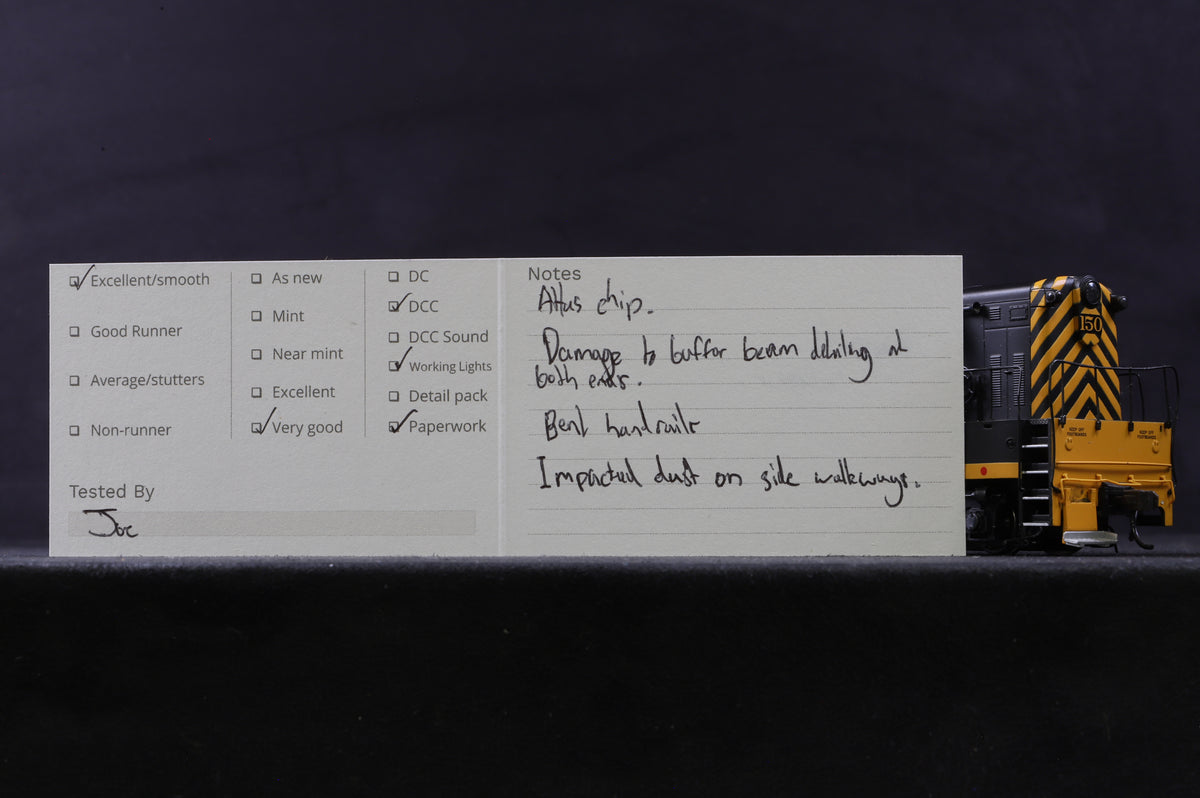 Excellent/smooth
Good Runner
Average/stutters
Non-runner
As new
Mint
Near mint
Excellent
Very good
DC
DCC
DCC Sound
Working Lights
Detail pack
Paperwork
Tested By
Joe
Notes
Attus chip.
Damage to buffer beam detailing at
both ends.
Bent handrails
Impacted dust on side walkways.
150
KEEP OFF
FOOTBOARDS
KEEP OFF
FOOTBOARDS